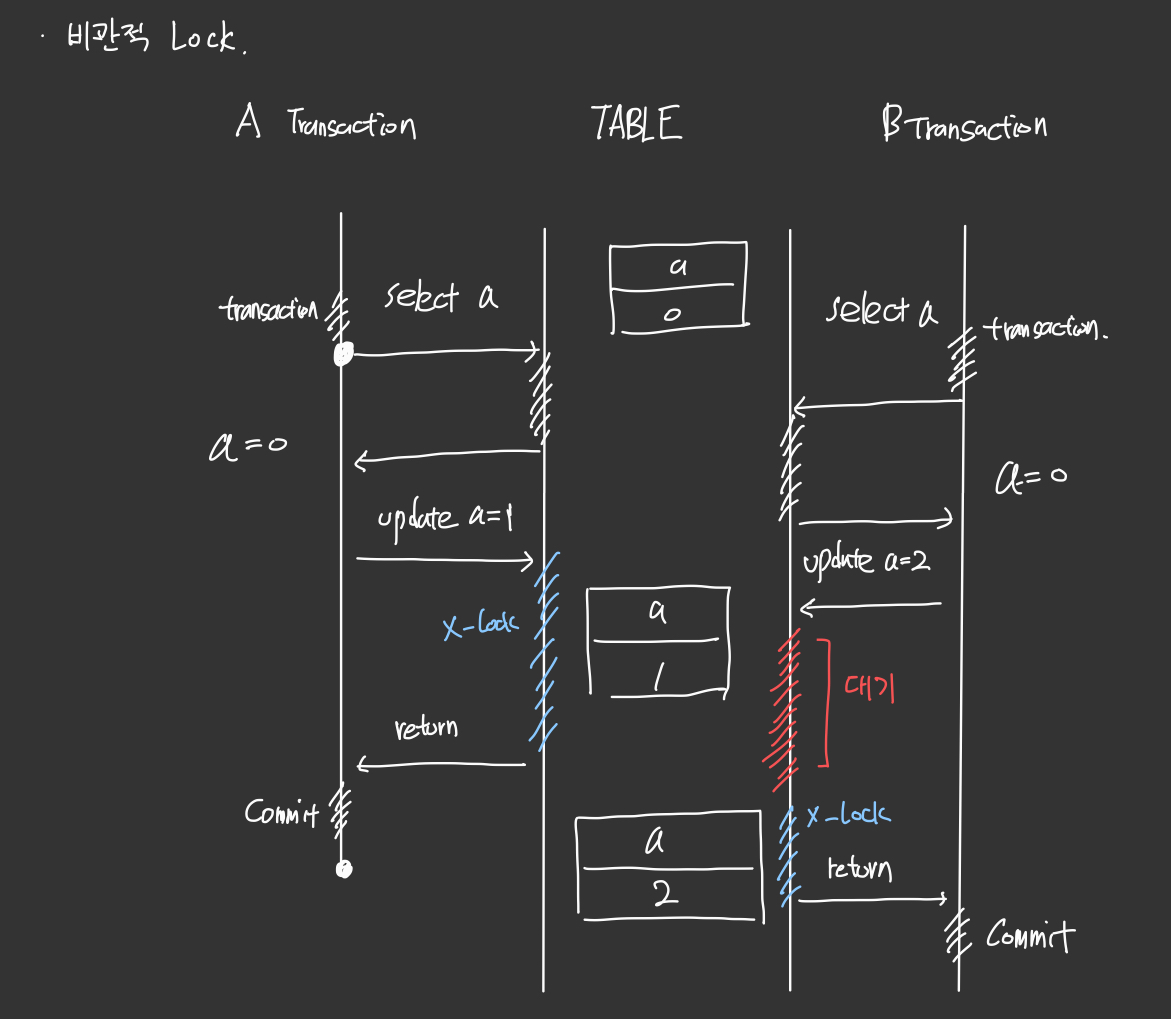 · 비관적 Lock.
A Transaction TABLE B Transaction
a
0
transaction select a
select a transaction.
a=0
a=0
update a=1
update a=2
x-lock
a
1
대기
return
Commit
x-lock
a
2
return
Commit